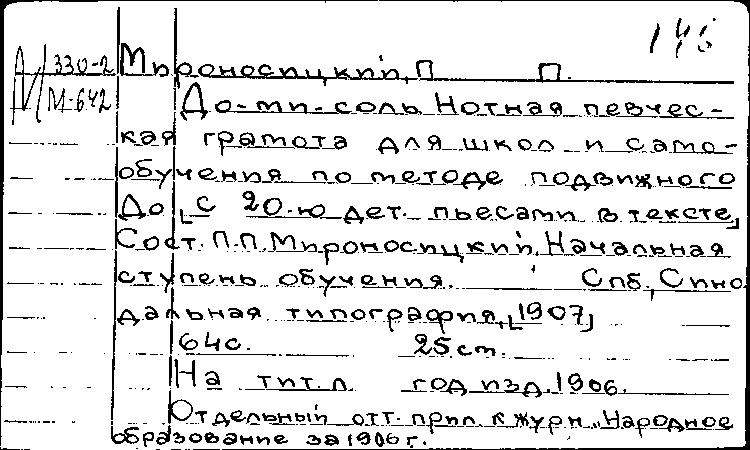 146
М 330-2
М-642
Мироносицкий, П П.
До-ми-соль Нотная певчес-
кая грамота для школ и само-
обучения по методе подвижного
До [с 20-ю дет. пьесами в тексте]
Сост. П.П. Мироносицкий. Начальная
ступень обучения. Спб, Сино
дальная типография, [1907]
64с. 25 ст.
На тит. л год изд. 1906.
Отдельный отт. прил к журн „Народное
образование за 1906г.